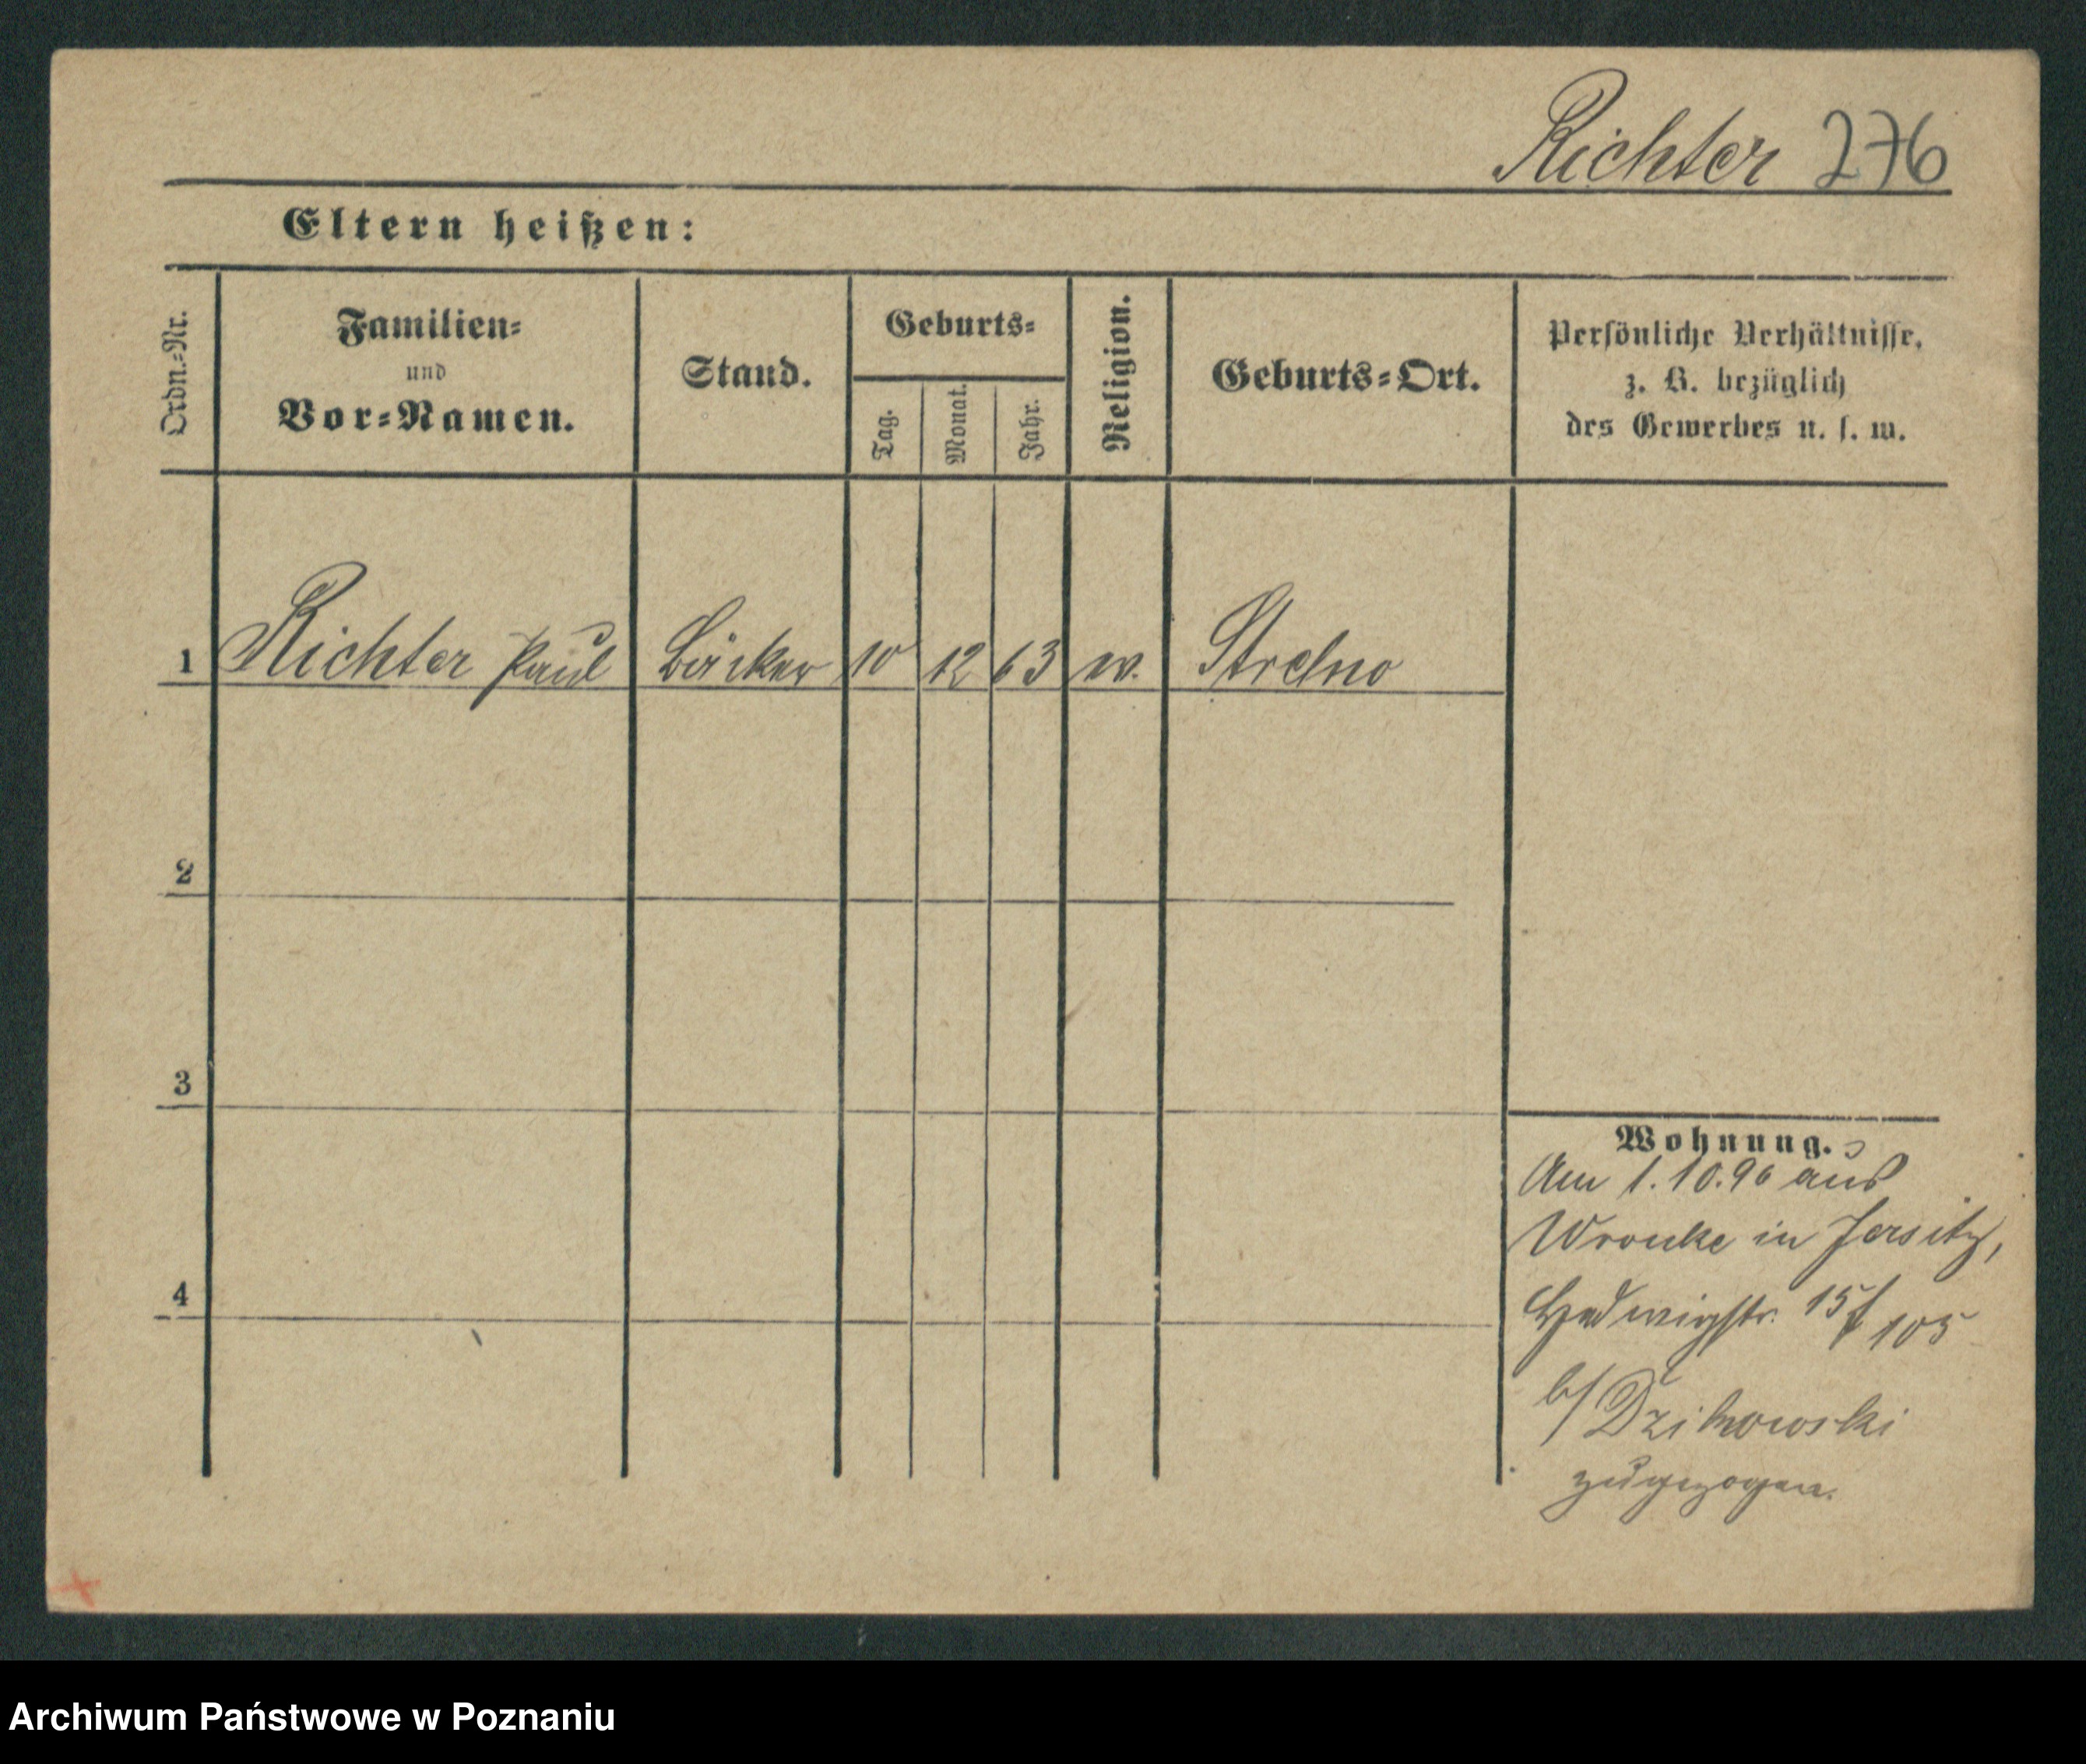 Richter 276
Eltern heißen:
Ordn.=Nr.
Familien=
und
Vor=Namen.
Stand.
Geburts=
Tag.
Monat.
Jahr.
Religion.
Geburts=Ort.
Persönliche Verhältnisse,
z. B. bezüglich
des Gewerbes u. s. w.
1 Richter Paul Bäcker 10 12 63 ev. Strelno
2
3
4
Wohnung.
Am 1.10.96 aus
Wronke in Jersitz,
Hedwigstr. 105
b/ Dzikowski
zugezogen.
Archiwum Państwowe w Poznaniu